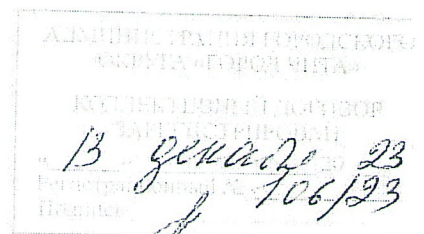 АДМИНИСТРАЦИЯ ГОРОДСКОГО
ОКРУГА «ГОРОД ЧИТА»
КОЛЛЕКТИВНЫЙ ДОГОВОР
ЗАРЕГИСТРИРОВАН
« 13 декабря 20 23
Регистрационный № 106/23
Подпись